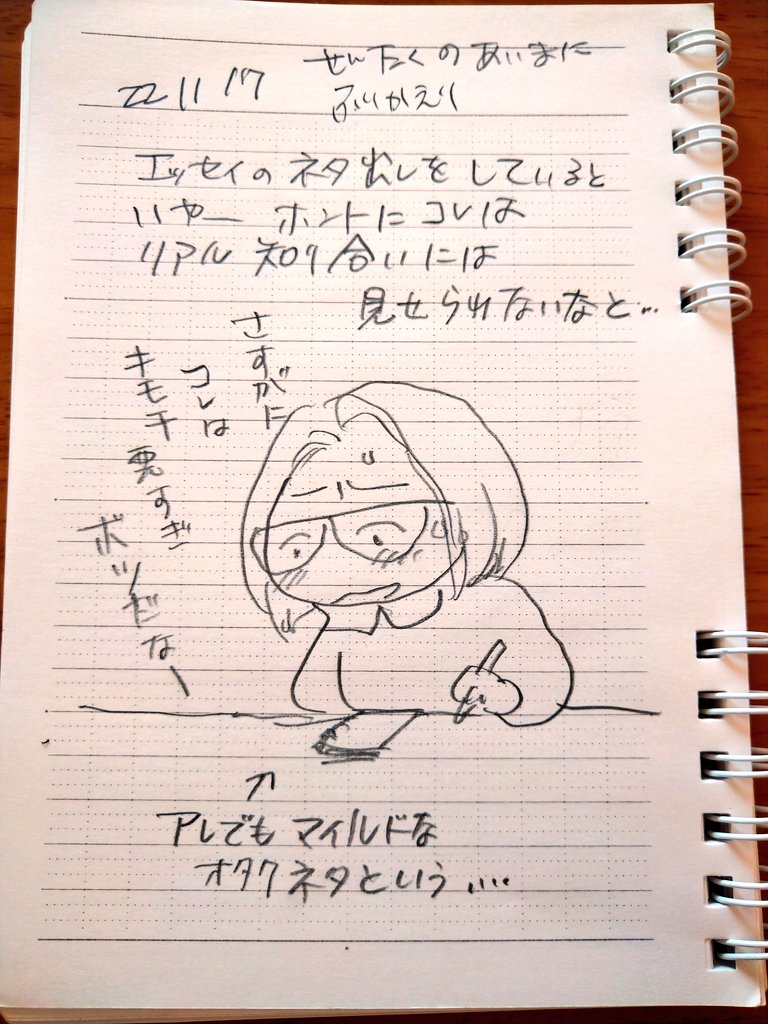 22 11 17
せんたくのあいまに
ふりかえり
エッセイのネタ出しをしていると
いやー ホントにコレは
リアル知り合いには
見せられないなと…
さすがに
コレは
キモチ悪すぎ
ボツだなー
アレでもマイルドな
オタクネタという….